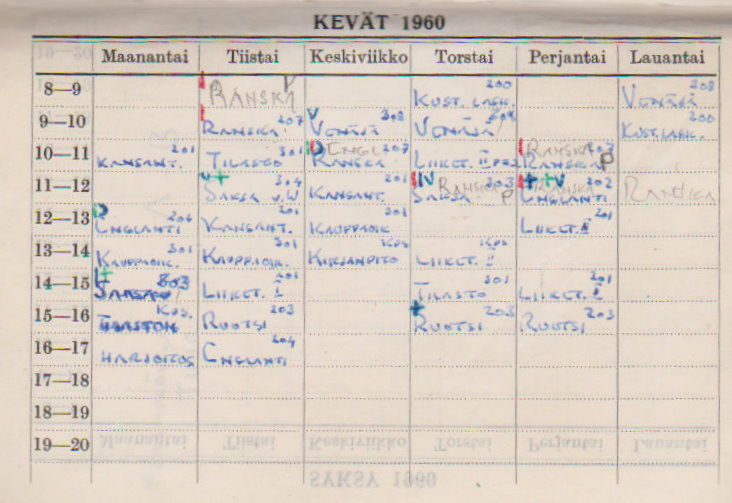 KEVÄT 1960
Maanantai Tiistai Keskiviikko Torstai Perjantai Lauantai
8—9 RANSKA P KUST. LASK. 200 VENÄJÄ 308
9—10 RANSKA 207 VENÄJÄ 308 VENÄJÄ KUST. LASK. 200
10—11 KANSANT. 201 TILASTO 301 RANSKA 207 LIIKET. II RANSKA RANSKA P
11—12 SAKSA 304 KANSANT. 201 SAKSA 303 RANSKA P RANSKA ENGLANTI 202 RANSKA
12—13 ENGLANTI 204 KANSANT. 201 KAUPPAOIK. 301 LIIKET. II 201
13—14 KAUPPAOIK. 301 KAUPPAOIK. 301 KIRJANPITO LIIKET. II
14—15 303 LIIKET. I 201 TILASTO 301 LIIKET. I 201
15—16 RUOTSI 203 RUOTSI 203 RUOTSI 203
16—17 HARJOITUS ENGLANTI 204
17—18
18—19
19—20